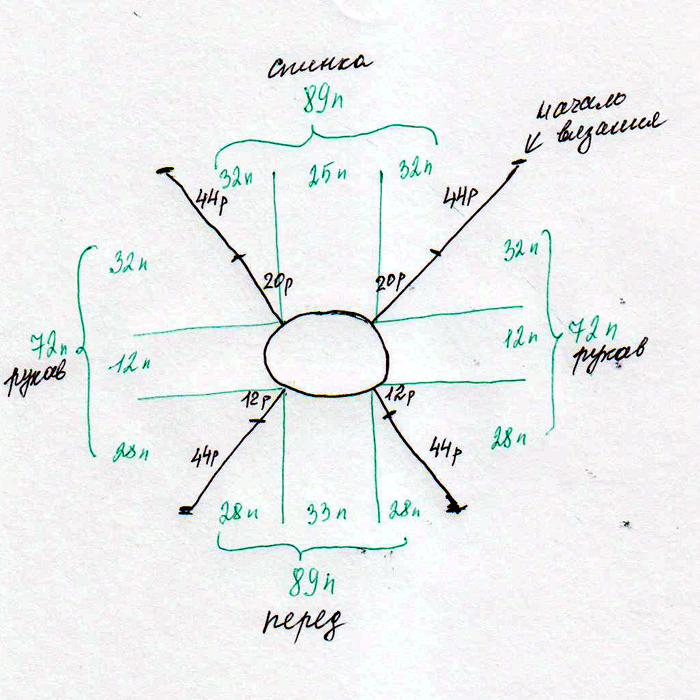 спинка
89п
начало
вязания
32п 25п 32п
44р 44р
32п 32п
20р 20р
72п 12п 12п 72п
рукав рукав
12р 12р
28п 44р 44р 28п
28п 33п 28п
89п
перед